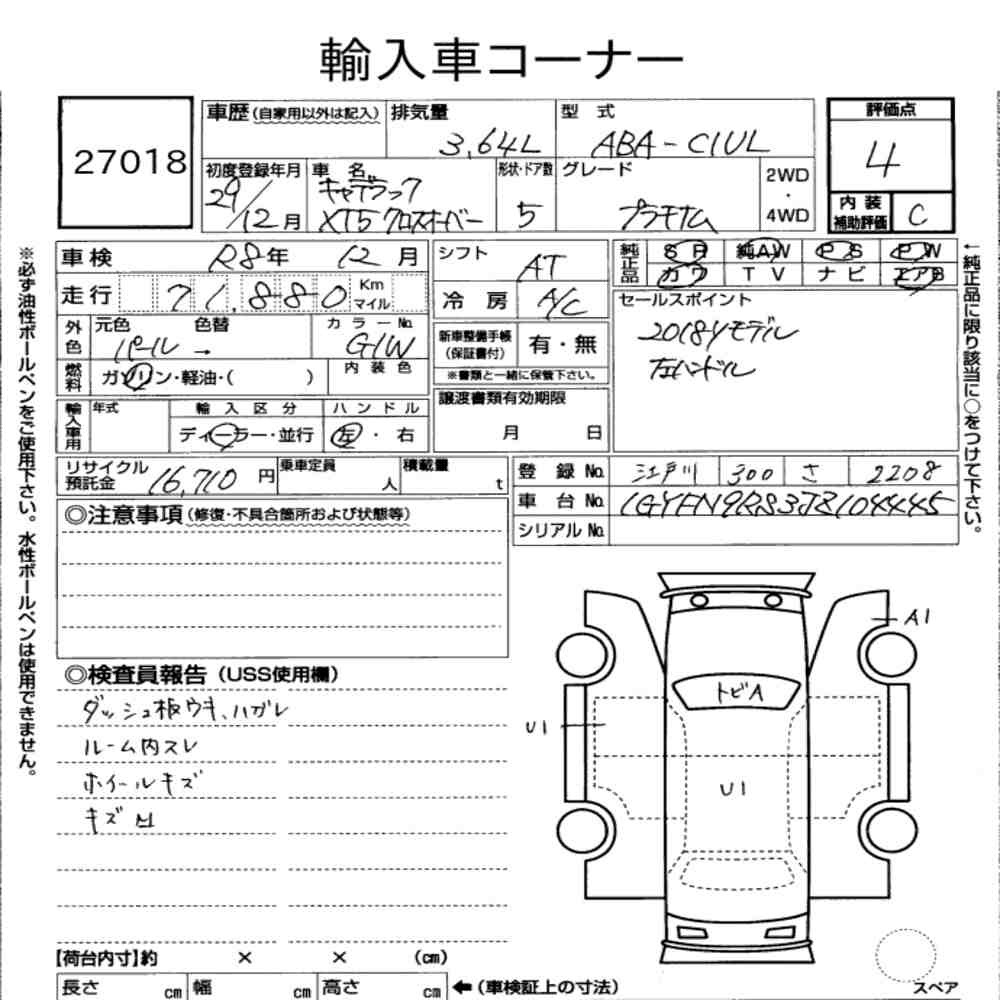 輸入車コーナー
27018
車歴(自家用以外は記入)
排気量
3.64L
型 式
ABA-C1UL
評価点
4
初度登録年月
29/12月
車 名
キャデラック
XT5 クロスオーバー
形状・ドア数
5
グレード
プラチナム
2WD
・
4WD
内 装
補助評価
C
車 検
R8年 12月
シフト
AT
純正品
SR 純AW PS PW
カワ TV ナビ エアB
走 行
71,880
Km
マイル
冷 房
A/C
セールスポイント
2018yモデル
左ハンドル
外色
元色
色替
パール →
カラーNo.
G1W
新車整備手帳
(保証書付)
有・無
※書類と一緒に保管下さい。
燃料
ガソリン・軽油・( )
内 装 色
輸入車用
年式
輸 入 区 分
ディーラー・並行
ハ ン ド ル
左 ・ 右
譲渡書類有効期限
月 日
リサイクル
預託金
16,710円
乗車定員
人
積載量
t
登 録 No.
江戸川 300 さ 2208
車 台 No.
1GYFN9RS3JZ104445
シリアル No.
◎注意事項(修復・不具合箇所および状態等)
◎検査員報告(USS使用欄)
ダッシュ板ウキ、ハガレ
ルーム内スレ
ホイールキズ
キズ凹
A1
トビA
U1
U1
スペア
【荷台内寸】約 × × (cm)
長さ cm 幅 cm 高さ cm
←(車検証上の寸法)
※必ず油性ボールペンをご使用下さい。水性ボールペンは使用できません。
←純正品に限り該当に○をつけて下さい。